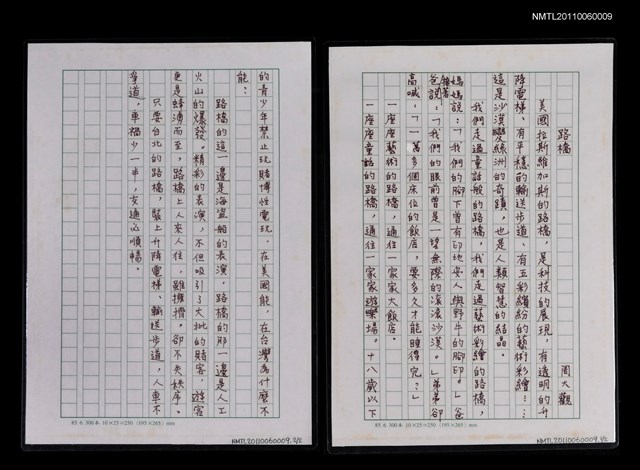 NMTL20110060009
路橋
周大觀
美國拉斯維加斯的路橋，是科技的展現，有透明的升
降電梯、有平穩的輸送步道、有五彩繽紛的藝術彩繪……
這是沙漠變綠洲的奇蹟，也是人類智慧的結晶。
我們走過童話般的路橋，我們走過藝術彩繪的路橋，
媽媽說：「我們的腳下曾有印地安人與野牛的腳印。」爸
爸接著說：「我們的眼前曾是一望無際的滾滾沙漠。」弟弟卻
高喊：「一萬多個床位的飯店，要多久才能睡得完？」
一座座藝術的路橋，通往一家家大飯店。
一座座童話的路橋，通往一家家遊樂場。十八歲以下
85.6.300本 10×25=250 (195×265) mm
NMTL20110060009.1/2
的青少年禁止玩賭博性電玩。在美國能，在台灣為什麼不
能？
路橋的這一邊是海盜船的表演，路橋的那一邊是人工
火山的爆發。精彩的表演，不但吸引了大批的賭客，遊客
更是蜂湧而至，路橋上人來人往，雖擁擠。卻不失秩序。
只要台北的路橋，裝上升降電梯、輸送步道，人車不
爭道，車禍少一半，交通必順暢。
85.6.300本 10×25=250 (195×265) mm
NMTL20110060009.2/2